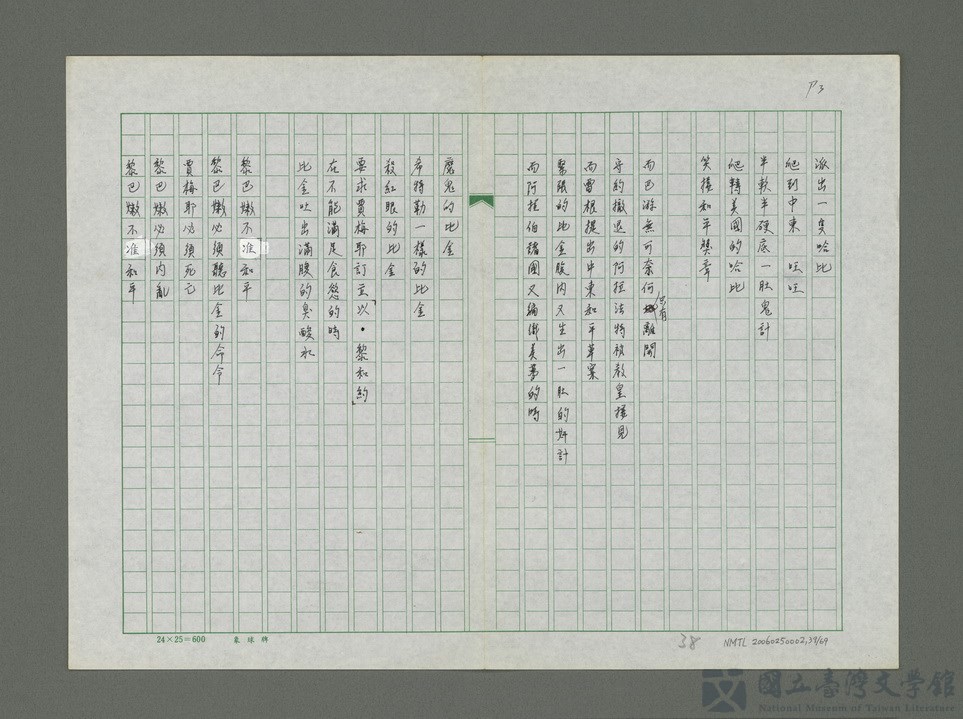 P3
派出一隻哈比
爬到中東　吱吱
半軟半硬底一肚鬼計
爬轉美國的哈比
笑接和平獎章
而巴游無可奈何只有離開
守約撤退的阿拉法特被教皇接見
而雷根提出中東和平草案
緊張的比金腹內又生出一肚的奸計
而阿拉伯諸國又編織美夢的時
魔鬼的比金
希特勒一樣的比金
殺紅眼的比金
要求賈梅耶訂立「以・黎和約」
在不能滿足食慾的時
比金吐出滿腹的臭酸水
黎巴嫩不准和平
黎巴嫩必須聽比金的命令
賈梅耶必須死亡
黎巴嫩必須內亂
黎巴嫩不准和平
24×25=600　象球牌
38
NMTL 20060250002,39/69
國立臺灣文學館
National Museum of Taiwan Literature